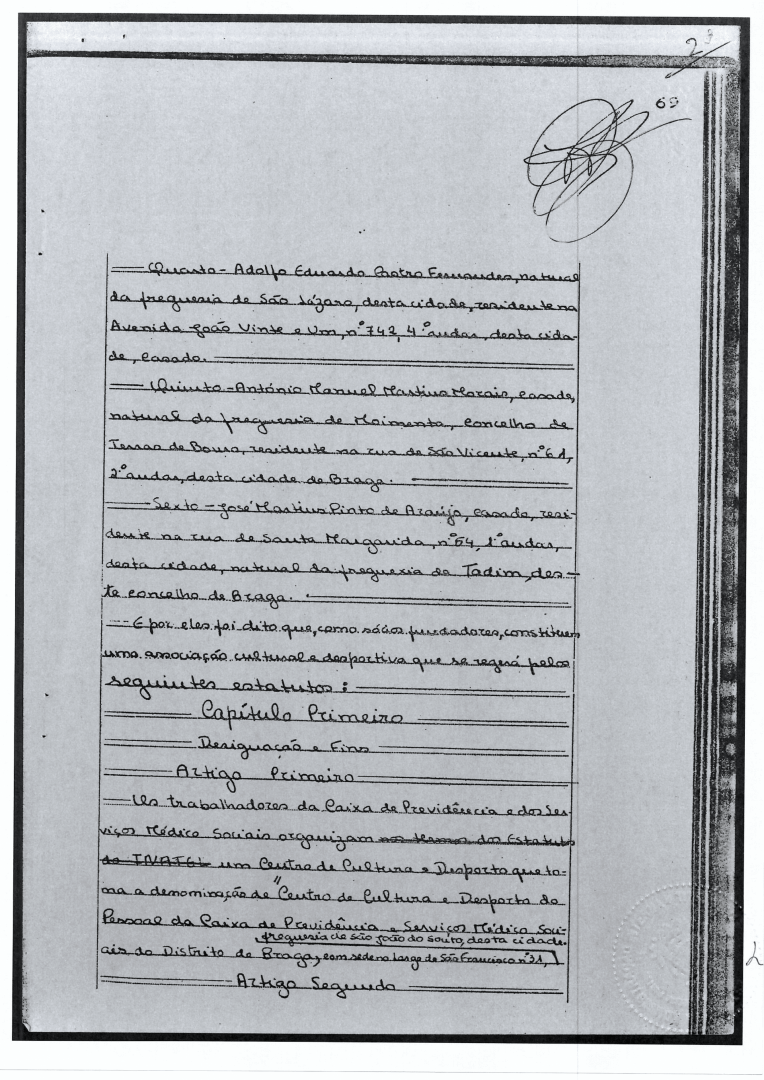 2
69
Quarto - Adolfo Eduardo Castro Fernandes, natural
da freguesia de São Lázaro, desta cidade, residente na
Avenida João Vinte e Um, nº 742, 4º andar, desta cida-
de, casado.
Quinto - António Manuel Martins Morais, casado,
natural da freguesia de Moimenta, concelho de
Terras de Bouro, residente na rua de São Vicente, nº 61,
2º andar, desta cidade de Braga.
Sexto - José Martins Pinto de Araújo, casado, resi-
dente na rua de Santa Margarida, nº 54, 1º andar,
desta cidade, natural da freguesia de Tadim, des-
te concelho de Braga.
E por eles foi dito que, como sócios fundadores, constituem
uma associação cultural e desportiva que se regerá pelos
seguintes estatutos:
Capítulo Primeiro
Designação e Fins
Artigo Primeiro
Os trabalhadores da Caixa de Previdência e dos Ser-
viços Médico Sociais organizam nos termos dos Estatutos
do INATEL um Centro de Cultura e Desporto que to-
ma a denominação de "Centro de Cultura e Desporto do
Pessoal da Caixa de Previdência e Serviços Médico Soci-
freguesia de São João do Souto, desta cidade.
ais do Distrito de Braga, com sede no Largo de São Francisco nº 31,
Artigo Segundo